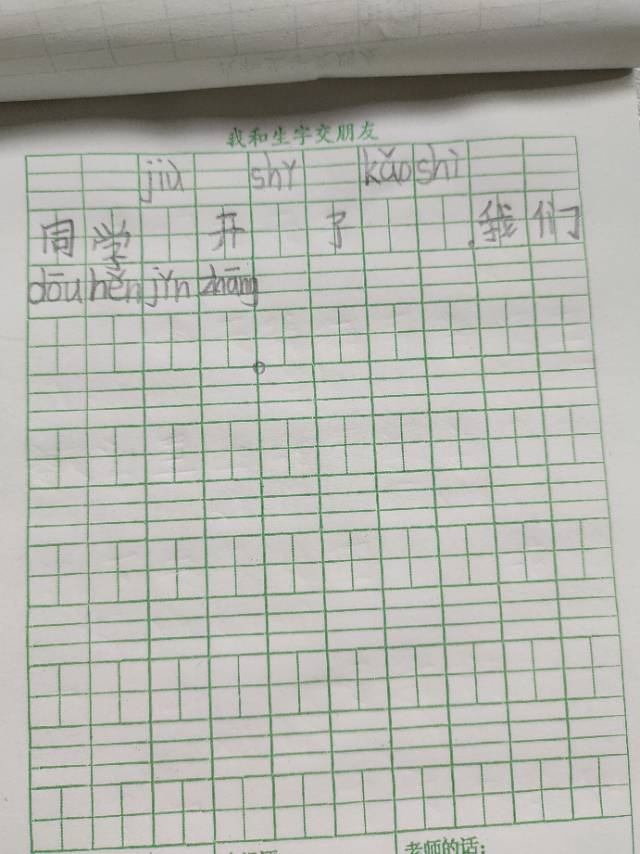 我和生字交朋友
jiù shǐ kǎo shì
同学 开 了 , 我们
dōu hěn jǐn zhāng
。
老师的话: